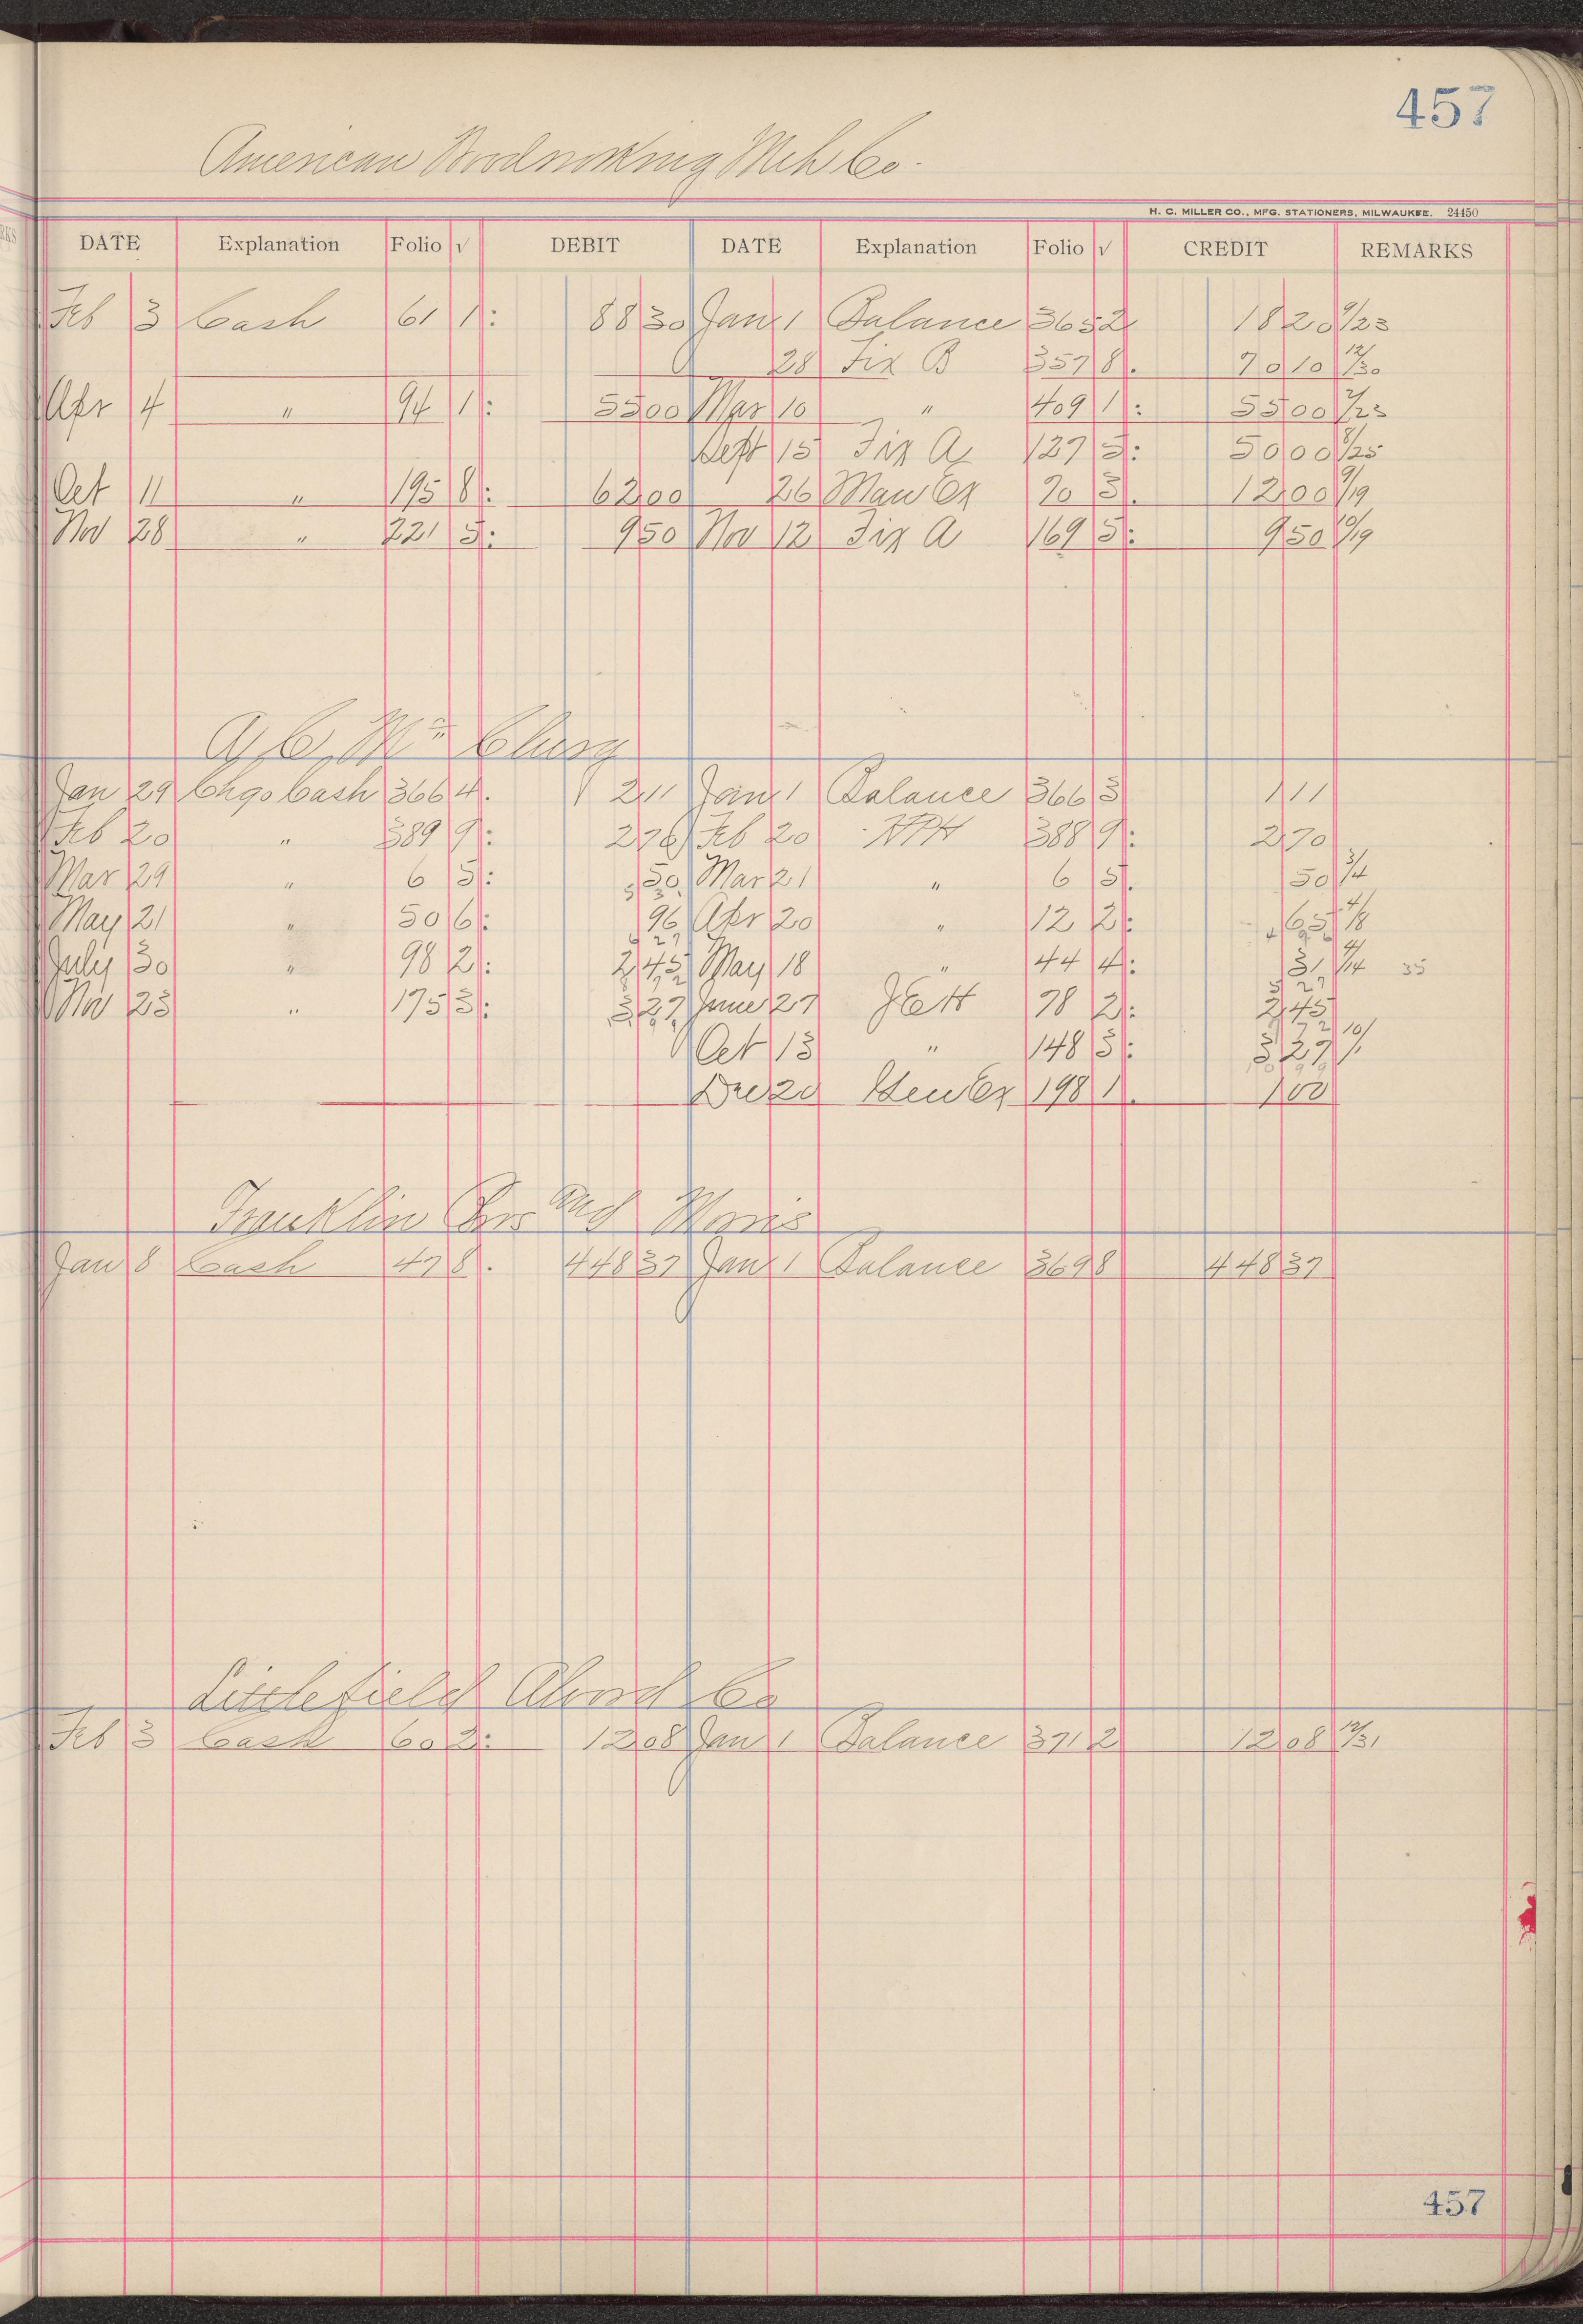 457
American Woodworking Mch Co.
H. C. MILLER CO., MFG. STATIONERS, MILWAUKEE. 24450
DATE Explanation Folio √ DEBIT DATE Explanation Folio √ CREDIT REMARKS
Feb 3 Cash 61 1: 88 30 Jan 1 Balance 365 2 18 20 9/23
28 Fix B 357 8: 70 10 12/30
Apr 4 " 94 1: 55 00 Mar 10 " 409 1: 55 00 2/23
Sept 15 Fix A 127 5: 50 00 8/25
Oct 11 " 195 8: 62 00 26 Man Ex 70 5: 12 00 9/19
Nov 28 " 221 5: 9 50 Nov 12 Fix A 169 5: 9 50 10/19
A. C. McClurg
Jan 29 Chgo Cash 366 4: 2 11 Jan 1 Balance 366 3 1 11
Feb 20 " 389 9: 2 76 Feb 20 388 9: 2 70
Mar 29 " 6 5: 50 Mar 21 " 6 5: 50 3/4
May 21 " 50 6: 96 Apr 20 " 12 2: 65 4/8
July 30 " 98 2: 2 45 May 18 " 44 4: 31 35
Nov 23 " 175 3: 3 27 June 27 78 2: 2 45
Oct 13 " 148 3: 3 27 10/1
Dec 20 Gen Ex 198 1: 1 00
Franklin
Jan 8 Cash 47 8: 448 37 Jan 1 Balance 369 8 448 37
Littlefield Alvord Co
Feb 3 Cash 60 2: 12 08 Jan 1 Balance 371 2 12 08 12/31
457